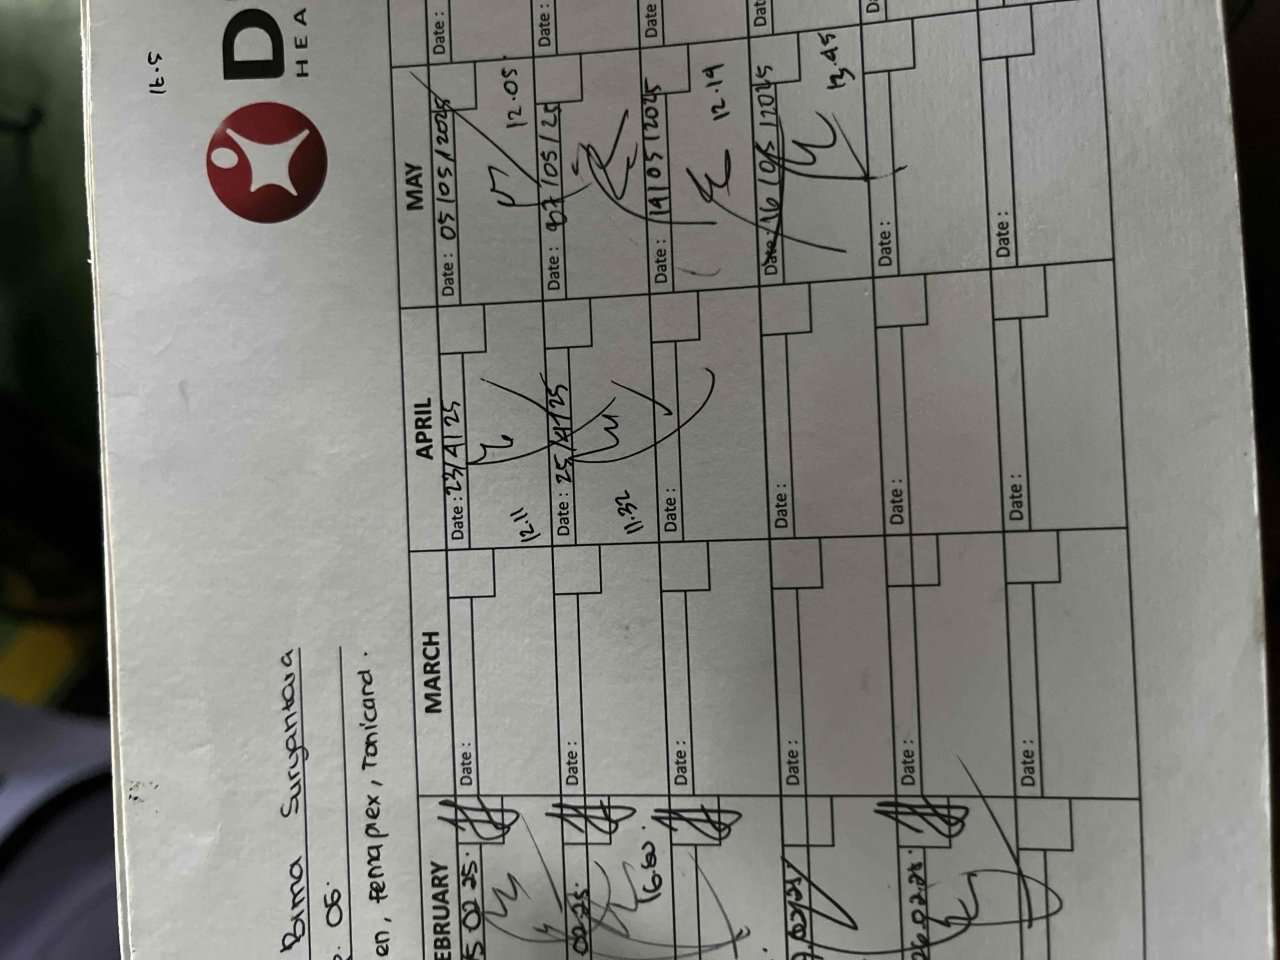 1t.5
D
HEA
Bima Suryantara
06.
en, Femaplex, Tonicard.
EBRUARY MARCH APRIL MAY
5 02 25. Date: Date: 23/4/25 Date: 05/05/2025 Date:
12.11 12.05
02.25. Date: Date: 25/4/25 Date: 07/05/25 Date:
16.60. 11.32
Date: Date: Date: 19/05/2025 Date:
12.19
.02.25 Date: Date: Date: 16/05/2025 Dat
13.45
26.02.25. Date: Date: Date: D
Date: Date: Date: